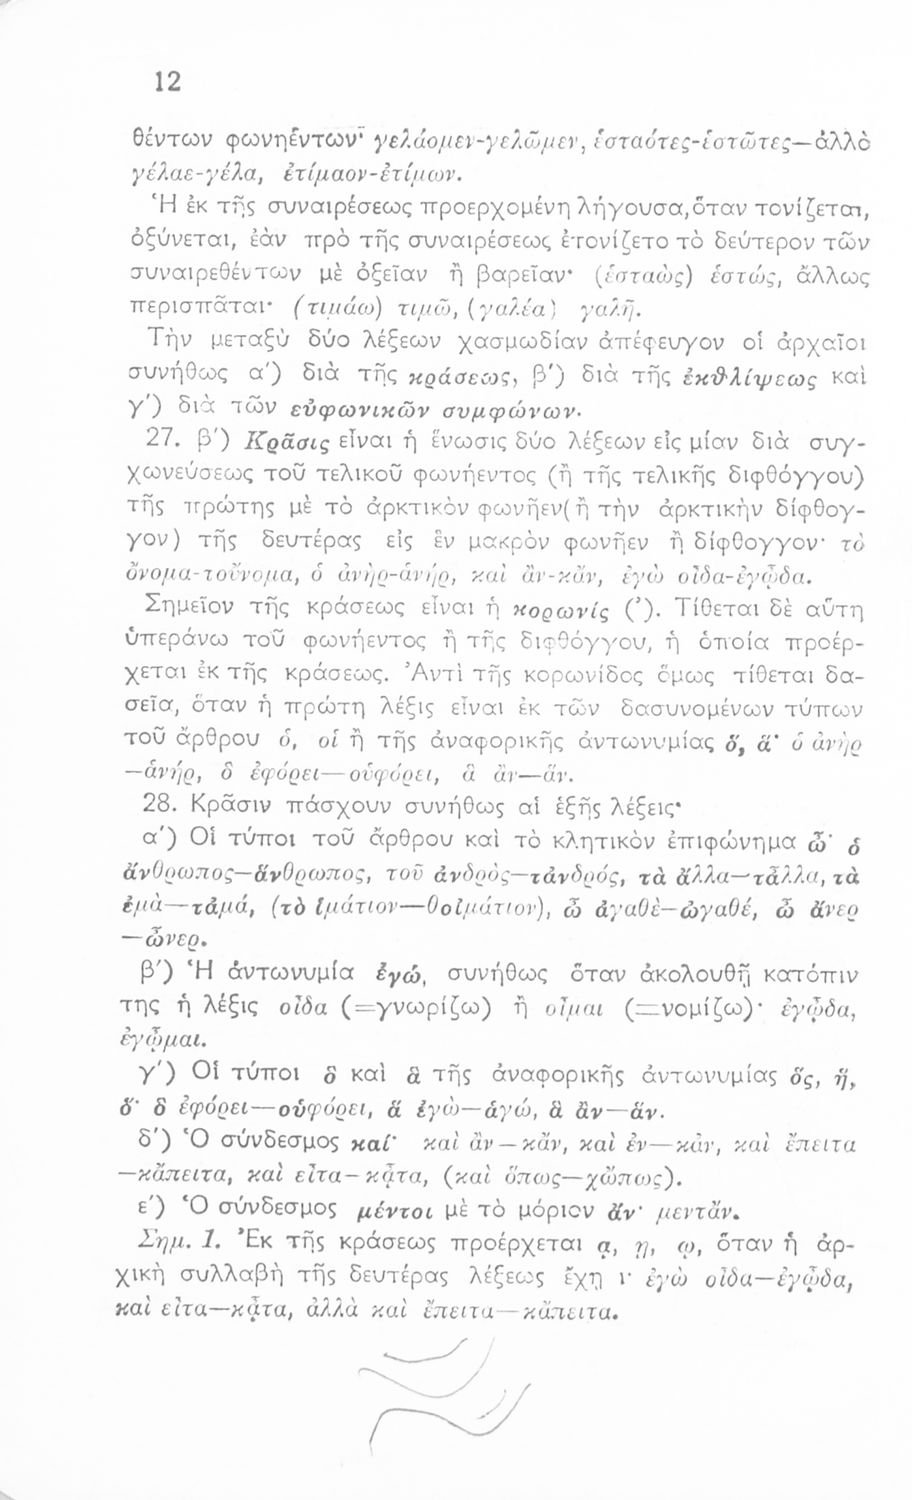 12
θέντων φωνηέντων· γελάομεν-γελῶμεν, ἑσταότες-ἑστῶτες—ἀλλὰ
γέλαε-γέλα, ἐτίμαον-ἐτίμων.
Ἡ ἐκ τῆς συναιρέσεως προερχομένη λήγουσα, ὅταν τονίζεται,
ὀξύνεται, ἐὰν πρὸ τῆς συναιρέσεως ἐτονίζετο τὸ δεύτερον τῶν
συναιρεθέντων μὲ ὀξεῖαν ἢ βαρεῖαν· (ἑσταὼς) ἑστώς, ἄλλως
περισπᾶται· (τιμάω) τιμῶ, (γαλέα) γαλῆ.
Τὴν μεταξὺ δύο λέξεων χασμωδίαν ἀπέφευγον οἱ ἀρχαῖοι
συνήθως α΄) διὰ τῆς κράσεως, β΄) διὰ τῆς ἐκθλίψεως καὶ
γ΄) διὰ τῶν εὐφωνικῶν συμφώνων.
27. β΄) Κρᾶσις εἶναι ἡ ἕνωσις δύο λέξεων εἰς μίαν διὰ συγ-
χωνεύσεως τοῦ τελικοῦ φωνήεντος (ἢ τῆς τελικῆς διφθόγγου)
τῆς πρώτης μὲ τὸ ἀρκτικὸν φωνῆεν (ἢ τὴν ἀρκτικὴν δίφθογ-
γον) τῆς δευτέρας εἰς ἓν μακρὸν φωνῆεν ἢ δίφθογγον· τὸ
ὄνομα-τοὔνομα, ὁ ἀνὴρ-ἁνήρ, καὶ ἂν-κἄν, ἐγὼ οἶδα-ἐγᾦδα.
Σημεῖον τῆς κράσεως εἶναι ἡ κορωνίς (’). Τίθεται δὲ αὕτη
ὑπεράνω τοῦ φωνήεντος ἢ τῆς διφθόγγου, ἡ ὁποία προέρ-
χεται ἐκ τῆς κράσεως. Ἀντὶ τῆς κορωνίδος ὅμως τίθεται δα-
σεῖα, ὅταν ἡ πρώτη λέξις εἶναι ἐκ τῶν δασυνομένων τύπων
τοῦ ἄρθρου ὁ, οἱ ἢ τῆς ἀναφορικῆς ἀντωνυμίας ὅ, ἅ· ὁ ἀνὴρ
—ἁνήρ, ὃ ἐφόρει—οὑφόρει, ἃ ἂν—ἅν.
28. Κρᾶσιν πάσχουν συνήθως αἱ ἑξῆς λέξεις·
α΄) Οἱ τύποι τοῦ ἄρθρου καὶ τὸ κλητικὸν ἐπιφώνημα ὦ· ὁ
ἄνθρωπος—ἅνθρωπος, τοῦ ἀνδρὸς—τἀνδρός, τὰ ἄλλα—τἆλλα, τὰ
ἐμὰ—τἀμά, (τὸ ἱμάτιον—θοἰμάτιον), ὦ ἀγαθὲ—ὠγαθέ, ὦ ἄνερ
—ὦνερ.
β΄) Ἡ ἀντωνυμία ἐγώ, συνήθως ὅταν ἀκολουθῇ κατόπιν
της ἡ λέξις οἶδα (=γνωρίζω) ἢ οἶμαι (=νομίζω)· ἐγᾦδα,
ἐγᾦμαι.
γ΄) Οἱ τύποι ὃ καὶ ἃ τῆς ἀναφορικῆς ἀντωνυμίας ὅς, ἥ,
ὅ· ὃ ἐφόρει—οὑφόρει, ἃ ἐγὼ—ἁγώ, ἃ ἂν—ἅν.
δ΄) Ὁ σύνδεσμος καί· καὶ ἂν—κἄν, καὶ ἐν—κἀν, καὶ ἔπειτα
—κἄπειτα, καὶ εἶτα—κᾆτα, (καὶ ὅπως—χὤπως).
ε΄) Ὁ σύνδεσμος μέντοι μὲ τὸ μόριον ἄν· μεντἄν.
Σημ. 1. Ἐκ τῆς κράσεως προέρχεται ᾳ, ῃ, ῳ, ὅταν ἡ ἀρ-
χικὴ συλλαβὴ τῆς δευτέρας λέξεως ἔχῃ ι· ἐγὼ οἶδα—ἐγᾦδα,
καὶ εἶτα—κᾆτα, ἀλλὰ καὶ ἔπειτα—κἄπειτα.